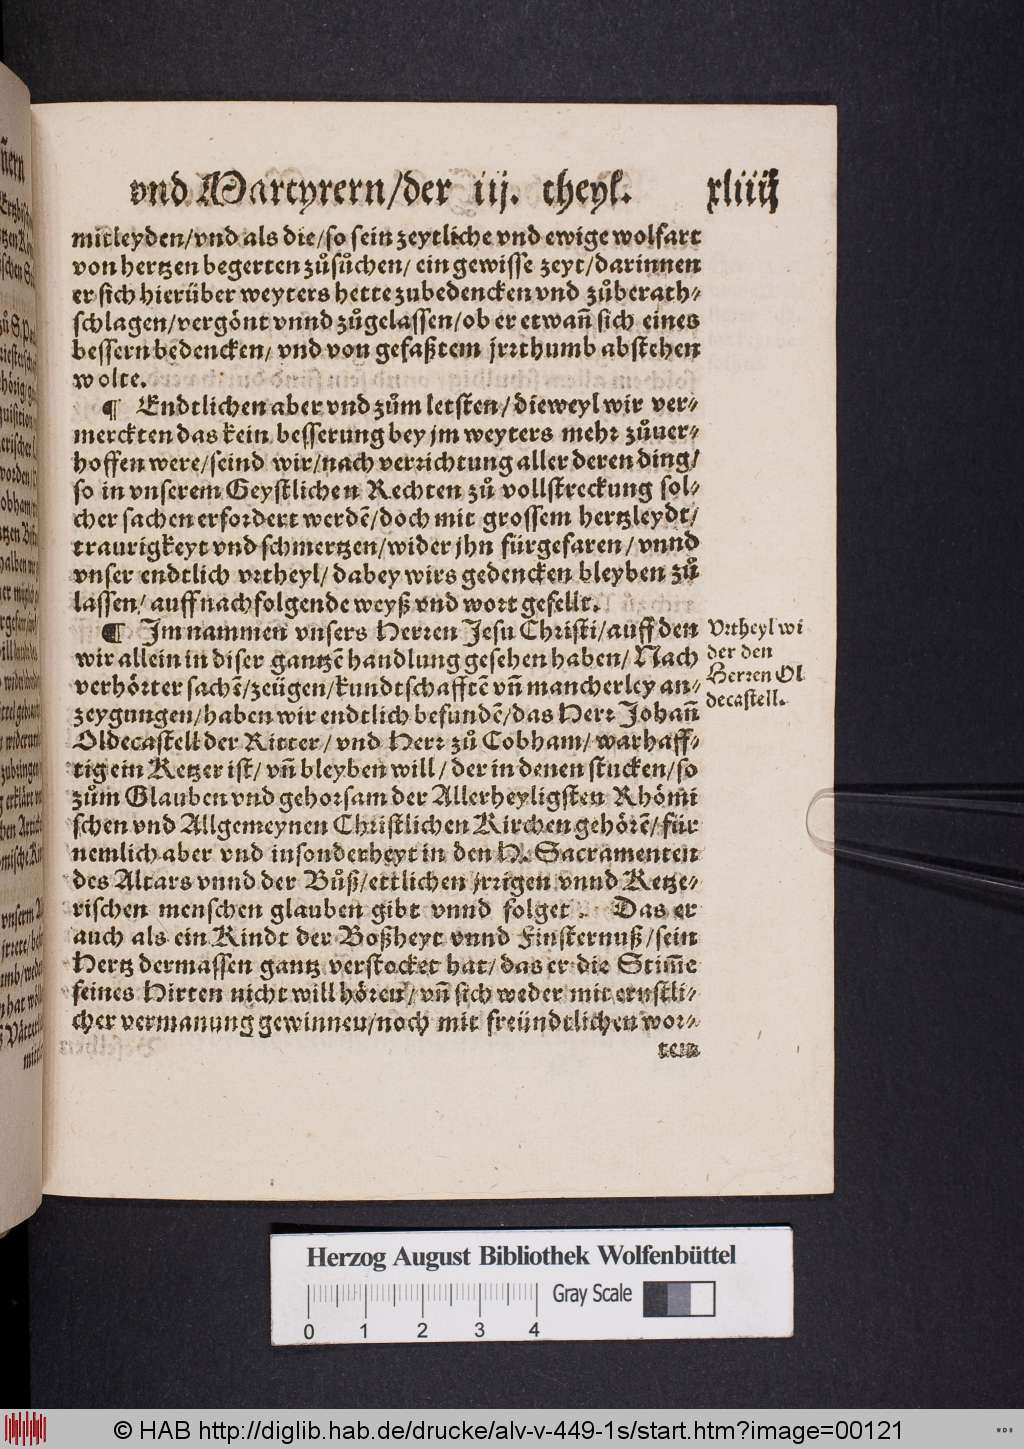 vnd Martyrern/der iij. theyl. xliiij
mitleyden/vnd als die/so sein zeytliche vnd ewige wolfart
von hertzen begerten zůsůchen/ ein gewisse zeyt/darinnen
er sich hierüber weyters hette zubedencken vnd zůberath⸗
schlagen/vergönt vnnd zůgelassen/ob er etwan̄ sich eines
bessern bedencken/ vnd von gefaßtem jrꝛthumb abstehen
wolte.
¶ Endtlichen aber vnd zům letsten/dieweyl wir ver⸗
merckten das kein besserung bey jm weyters mehꝛ zůuer⸗
hoffen were/seind wir/nach verꝛichtung aller deren ding/
so in vnserem Geystlichen Rechten zů vollstreckung sol⸗
cher sachen erfoꝛdert werdē/doch mit grossem hertzleydt/
traurigkeyt vnd schmertzen/wider jhn fürgefaren/vnnd
vnser endtlich vꝛtheyl/dabey wirs gedencken bleyben zů
lassen/ auff nachfolgende weyß vnd woꝛt gefellt.
¶ Im nammen vnsers Herꝛen Jesu Christi/auff den
wir allein in diser gantzē handlung gesehen haben/Nach
verhöꝛter sachē/zeügen/kundtschafftē vn̄ mancherley an⸗
zeygungen/haben wir endtlich befundē/das Herꝛ Johan̄
Oldecastell der Ritter/ vnd Herꝛ zů Cobham/warhaff⸗
tig ein Ketzer ist/ vn̄ bleyben will/der in denen stucken/so
zům Glauben vnd gehoꝛsam der Allerheyligsten Rhömi
schen vnd Allgemeynen Christlichen Kirchen gehöꝛē/für
nemlich aber vnd insonderheyt in den H. Sacramenten
des Altars vnnd der Bůß/ettlichen jrꝛigen vnnd Ketze⸗
rischen menschen glauben gibt vnnd folget. Das er
auch als ein Kindt der Boßheyt vnnd Finsternuß/sein
Hertz dermassen gantz verstocket hat/das er die Stim̄e
seines Hirten nicht will höꝛen/ vn̄ sich weder mit ernstli⸗
cher vermanung gewinnen/noch mit freündtlichen woꝛ⸗
ten
Vꝛtheyl wi
der den
Herꝛen Ol
decastell.
Herzog August Bibliothek Wolfenbüttel
Gray Scale
0 1 2 3 4
© HAB http://diglib.hab.de/drucke/alv-v-449-1s/start.htm?image=00121